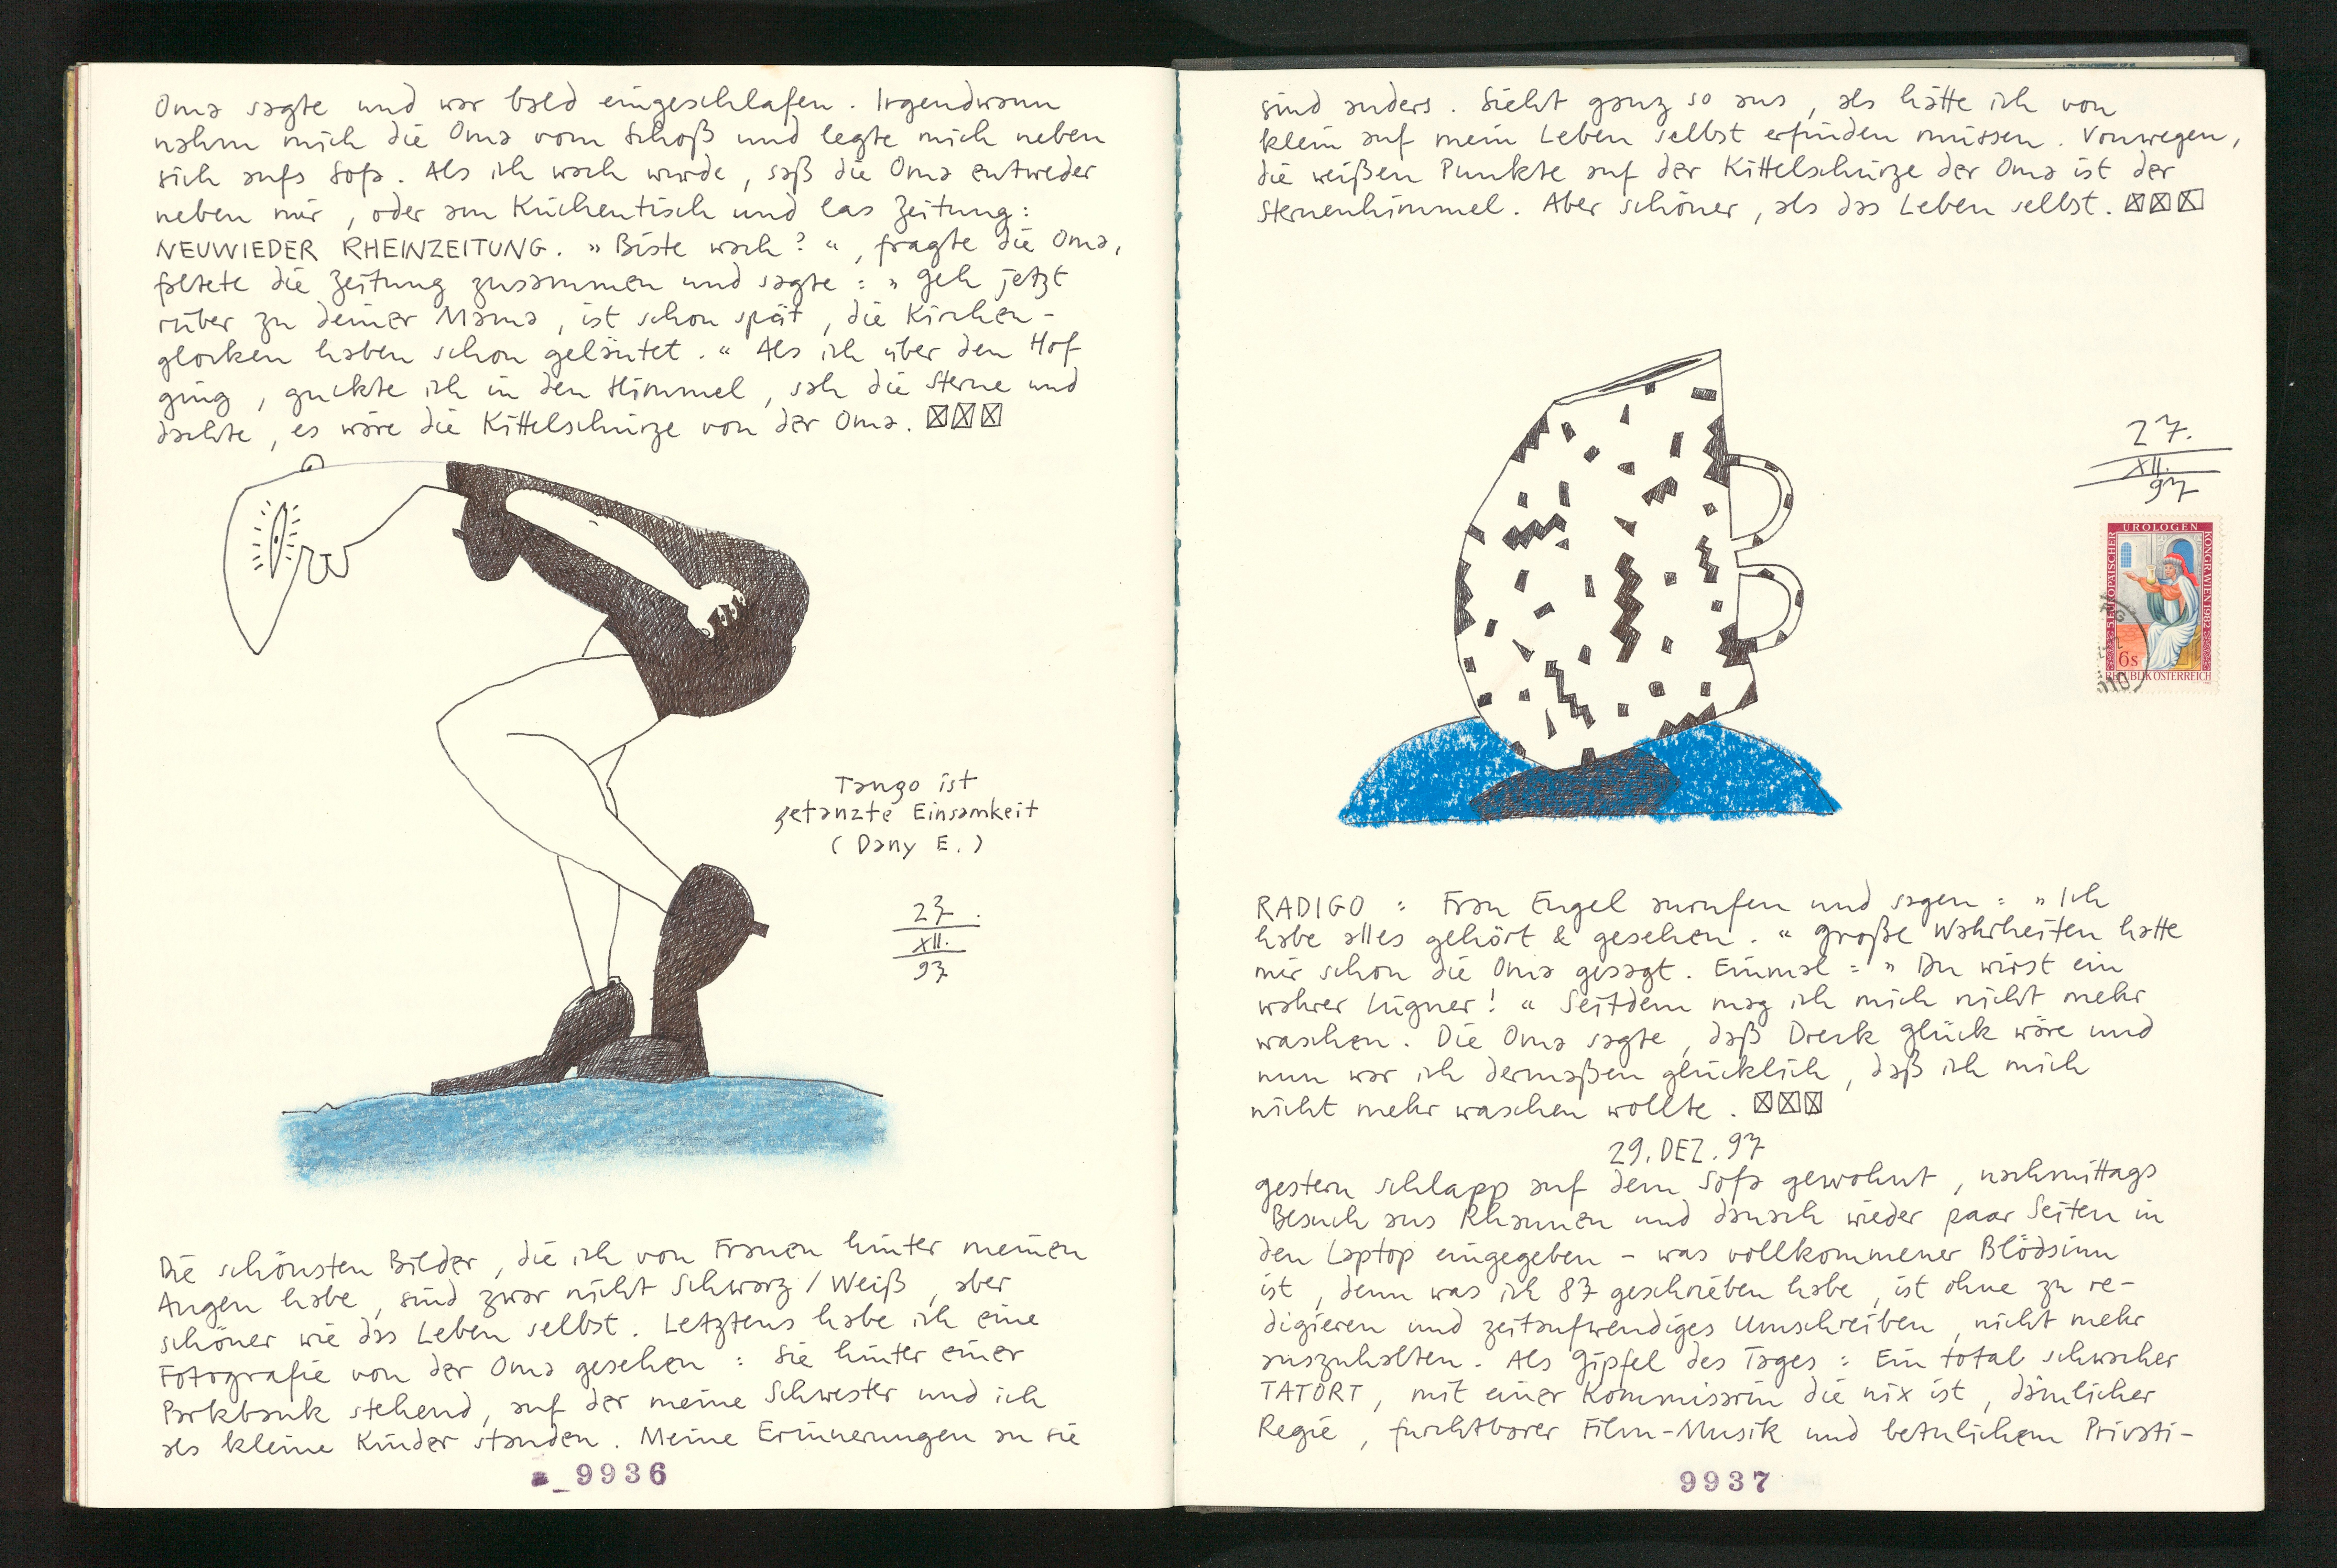 Oma sagte und war bald eingeschlafen. Irgendwann
nahm mich die Oma vom Schoß und legte mich neben
sich aufs Sofa. Als ich wach wurde, saß die Oma entweder
neben mir, oder am Küchentisch und las Zeitung:
NEUWIEDER RHEINZEITUNG. »Biste wach?«, fragte die Oma,
faltete die Zeitung zusammen und sagte: »Geh jetzt
rüber zu deiner Mama, ist schon spät, die Kirchen-
glocken haben schon geläutet.« Als ich über den Hof
ging, guckte ich in den Himmel, sah die Sterne und
dachte, es wäre die Kittelschürze von der Oma.
Tango ist
getanzte Einsamkeit
(Dany E.)
27.
XII.
97
Die schönsten Bilder, die ich von Frauen hinter meinen
Augen habe, sind zwar nicht Schwarz/Weiß, aber
schöner wie das Leben selbst. Letztens habe ich eine
Fotografie von der Oma gesehen: Sie hinter einer
Parkbank stehend, auf der meine Schwester und ich
als kleine Kinder standen. Meine Erinnerungen an sie
9936
sind anders. Sieht ganz so aus, als hätte ich von
klein auf mein Leben selbst erfinden müssen. Vonwegen,
die weißen Punkte auf der Kittelschürze der Oma ist der
Sternenhimmel. Aber schöner, als das Leben selbst.
27.
XII.
97
UROLOGEN
5. EUROPÄISCHER
KONGRE WIEN 1982
6s
REPUBLIK ÖSTERREICH
RADIGO: Frau Engel anrufen und sagen: »Ich
habe alles gehört & gesehen.« Große Wahrheiten hatte
mir schon die Oma gesagt. Einmal: »Du wirst ein
wahrer Lügner!« Seitdem mag ich mich nicht mehr
waschen. Die Oma sagte, daß Dreck Glück wäre und
nun war ich dermaßen glücklich, daß ich mich
nicht mehr waschen wollte.
29. DEZ. 97
gestern schlapp auf dem Sofa gewohnt, nachmittags
Besuch aus Rhaunen und danach wieder paar Seiten in
den Laptop eingegeben – was vollkommener Blödsinn
ist, denn was ich 87 geschrieben habe, ist ohne zu re-
digieren und zeitaufwendiges Umschreiben, nicht mehr
auszuhalten. Als Gipfel des Tages: Ein total schwacher
TATORT, mit einer Kommissarin die nix ist, dämlicher
Regie, furchtbarer Film-Musik und betulichem Privati-
9937